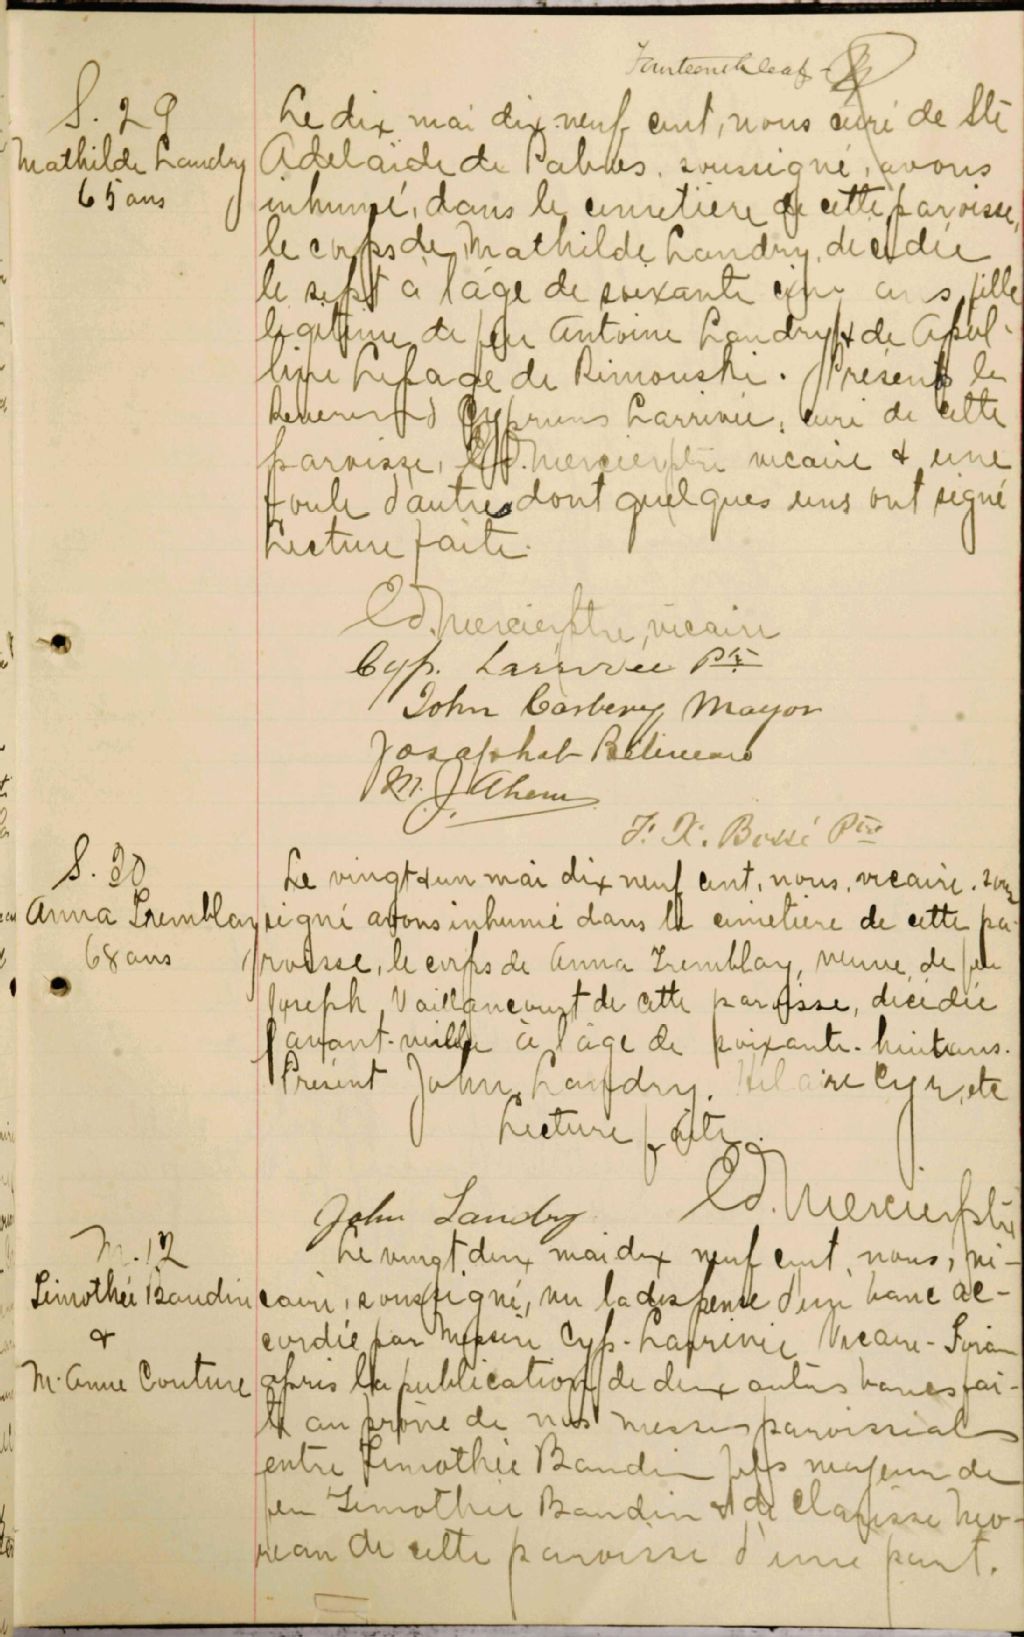 Fourteenth leaf
S. 29
Mathilde Landry
65 ans
Le dix mai dix-neuf cent, nous curé de Ste
Adelaïde de Pabos, soussigné, avons
inhumé, dans le cimetière de cette paroisse,
le corps de Mathilde Landry, décédée
le sept à l'âge de soixante cinq ans, fille
légitime de feu Antoine Landry & de Apol-
line Lepage de Rimouski. Présents le
Révérend Cyprien Larrivée, curé de cette
paroisse, Ed. Mercier ptre vicaire & une
foule d'autres dont quelques uns ont signé
Lecture faite.
Ed. Mercier ptre, vicaire
Cyp. Larrivée Ptr
John Carbery Mayor
Josaphat
M. J. Ahern
F. X. Bossé Ptre
S. 30
Anna Tremblay
68 ans
Le vingt & un mai dix neuf cent, nous, vicaire, sous
signé avons inhumé dans le cimetière de cette pa-
roisse, le corps de Anna Tremblay, veuve de feu
Joseph Vaillancourt de cette paroisse, décédée
l'avant-veille à l'âge de soixante-huit ans.
Présent John Landry, Hilaire Cyr, etc
Lecture faite.
John Landry Ed. Mercier ptre
M. 12
Timothée Baudin
&
M. Anne Couture
Le vingt deux mai dix neuf cent, nous, vi-
caire, soussigné, vu la dispense d'un banc ac-
cordée par Messire Cyp. Larrivée Vicaire-Forain
après la publication de deux autres bancs fai-
te au prône de nos messes paroissiales
entre Timothée Baudin fils majeur de
feu Timothée Baudin & de Clarisse
de cette paroisse d'une part.